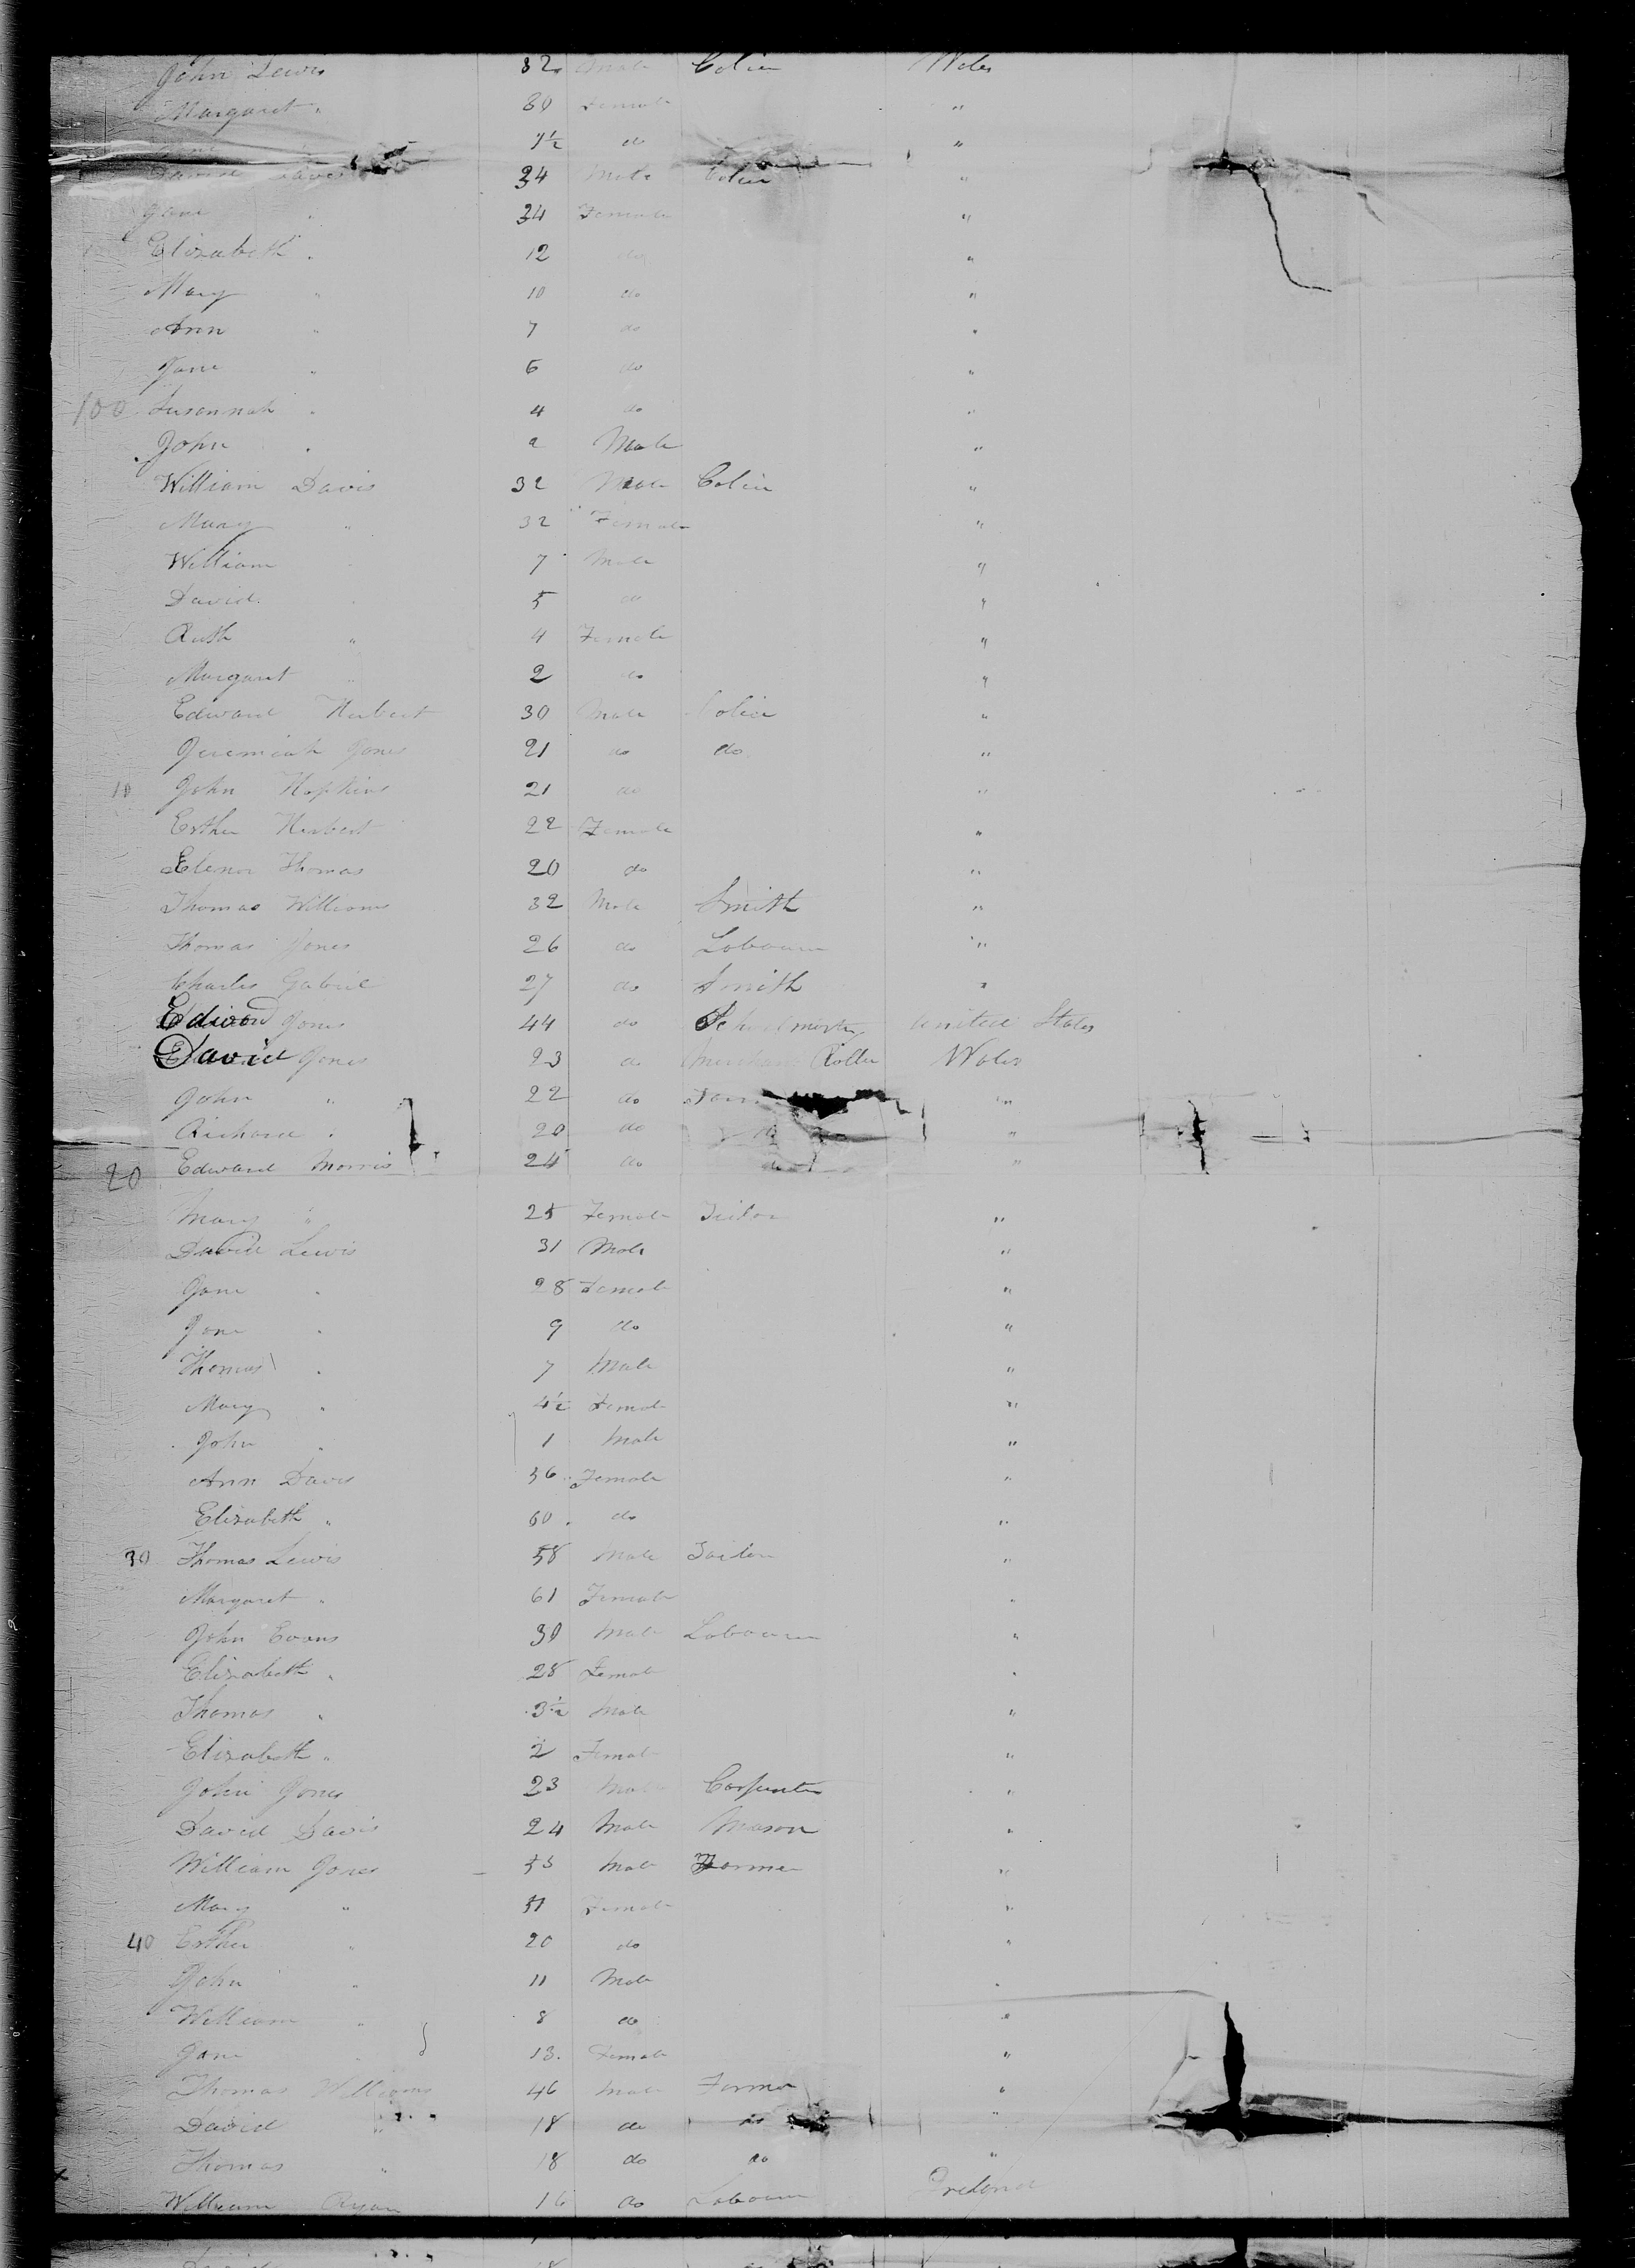 John Lewis 32 Male Colier Wales
Margaret " 30 Female "
1½ do "
David Davis 34 Male Colier "
Jane " 34 Female "
Elizabeth " 12 do "
Mary " 10 do "
Ann " 7 do "
Jane " 6 do "
100 Susannah " 4 do "
John " Male "
William Davis 32 Male Colier "
Mary " 32 Female "
William 7 Male "
David 5 do "
Ruth " 4 Female "
Margaret " 2 do "
Edward Herbert 30 Male Colier "
Jeremiah Jones 21 do do "
10 John Hopkins 21 do "
Esther Herbert 22 Female "
Elenor Thomas 20 do "
Thomas Williams 32 Male Smith "
Thomas Jones 26 do Labourer "
Charles Gabriel 27 do Smith "
Edward Jones 44 do Schoolmaster United States
David Jones 23 do Roller Wales
John " 22 do "
Richard " 20 do "
20 Edward Morris 24 do do "
Mary " 25 Female "
David Lewis 31 Male "
Jane " 28 Female "
Jane " 9 do "
Thomas " 7 Male "
Mary " 4½ Female "
John " 1 Male "
Ann Davis 36 Female "
Elizabeth " 60 do "
30 Thomas Lewis 58 Male Tailor "
Margaret " 61 Female "
John Evans 30 Male Labourer "
Elizabeth " 28 Female "
Thomas " 3½ Male "
Elizabeth " 2 Female "
John Jones 23 Male Carpenter "
David Davis 24 Male Mason "
William Jones 53 Male Farmer "
Mary " 51 Female "
40 Esther " 20 do "
John " 11 Male "
William " 8 do "
Jane " 13 Female "
Thomas Williams 46 Male Farmer "
David " 18 do do "
Thomas " 18 do do "
William Ryan 16 do Labourer Ireland